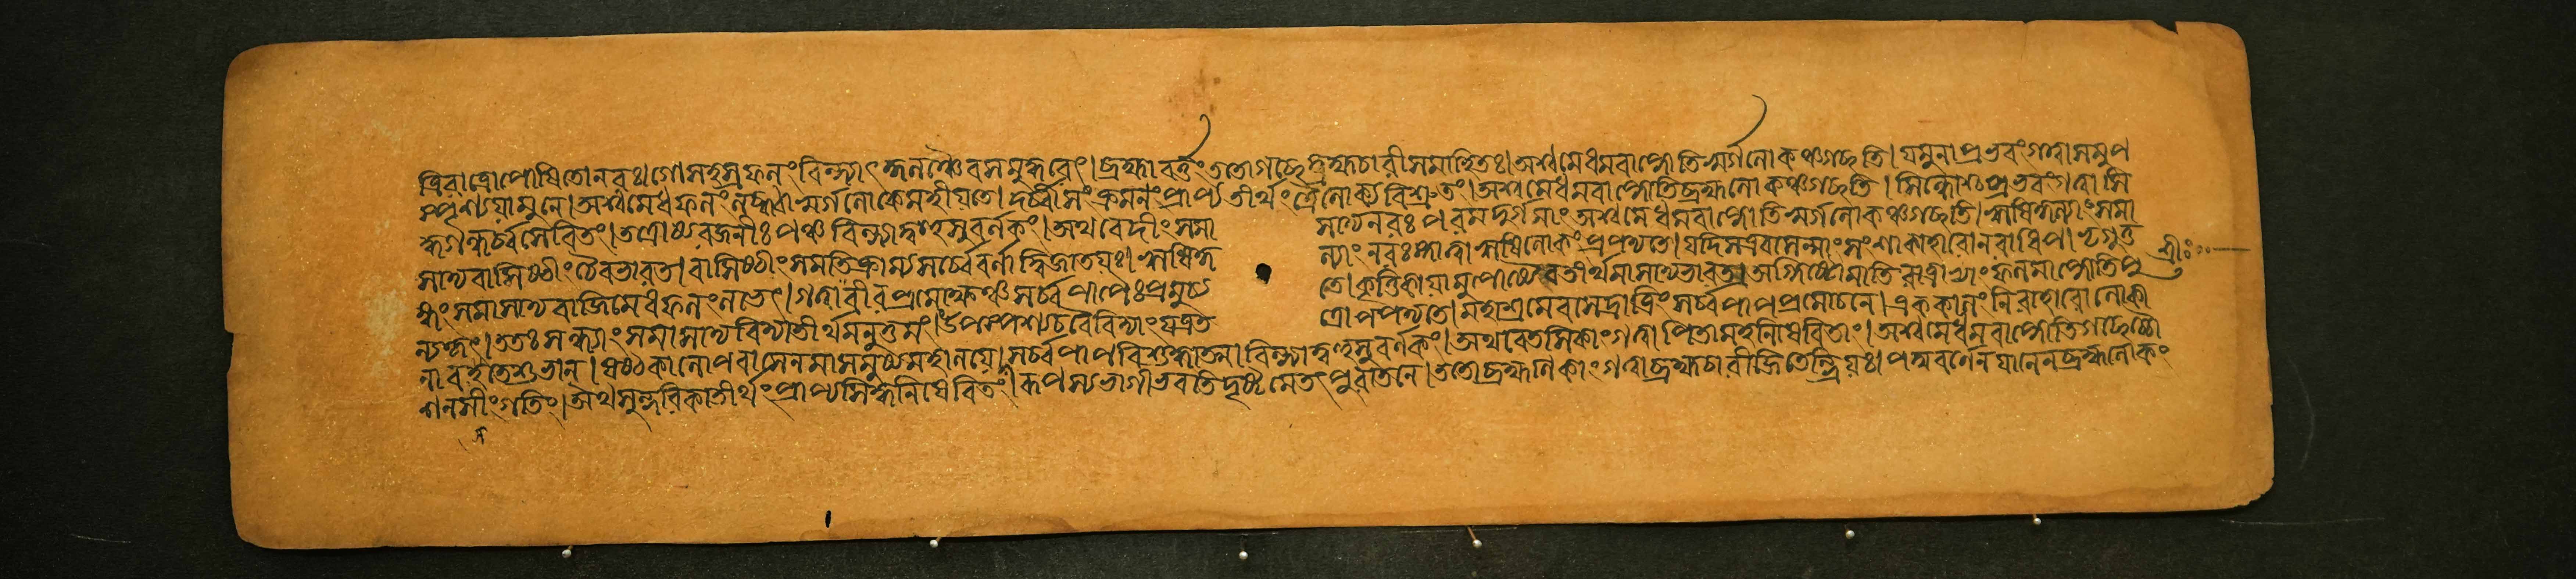 ত্রিরাত্রোপোষিতোনরঃ।গোসহস্রফলংবিন্দ্যাৎকুলঞ্চৈবসমুদ্ধরেৎ।ব্রহ্মাবর্ত্তংততোগচ্ছেদ্ব্রহ্মচারীসমাহিতঃ।অশ্বমেধমবাপ্নোতিস্বর্গলোকঞ্চগচ্ছতি।যমুনাপ্রভবংগত্বাসমুপ
স্পৃশ্যযামুনে।অশ্বমেধফলংলব্ধাস্বর্গলোকেমহীয়তে।দর্ব্বীসংক্রমনংপ্রাপ্যতীর্থংত্রৈলোক্যবিশ্রুতং।অশ্বমেধমবাপ্নোতিব্রহ্মলোকঞ্চগচ্ছতি।সিন্ধোশ্চপ্রভবংগত্বাসি
দ্ধগন্ধর্ব্বসেবিতং।তত্রোষ্যরজনীঃপঞ্চবিন্দ্যাদ্বহুসুবর্ণকং।অথবেদীংসমা সাদ্যনরঃপরমদুর্গমাংঅশ্বমেধমবাপ্নোতিস্বর্গলোকঞ্চগচ্ছতি।ঋষিকুল্যাংসমা
সাদ্যবাসিষ্ঠীংচৈবভারত।বাসিষ্ঠীংসমতিক্রাম্যসর্ব্বেবর্ণাদ্বিজাতয়ঃ।ঋষিকু ল্যাংনরঃস্নাত্বাঋষিলোকংপ্রপদ্যতে।যদিতত্রবসেন্মাসংশাকাহারোনরাধিপ।ভৃগুতু
ঙ্গংসমাসাদ্যবাজিমেধফলংলভেৎ।গত্বাবীরপ্রমোক্ষঞ্চসর্ব্বপাপৈঃপ্রমুচ্য তে।তীর্থমাসাদ্যভারত।অগ্নিষ্টোমাতিরাত্রাভ্যাংফলমাপ্নোতিপু
ন্যকৃৎ।ততঃসন্ধ্যাংসমাসাদ্যবিদ্যাতীর্থমনুত্তমং।উপস্পৃশ্যচবৈবিদ্যাংযত্রত ত্রোপপদ্যতে।মহাশ্রমেবসেদ্রাত্রিংসর্ব্বপাপপ্রমোচনে।এককালংনিরাহারোলোকা
নাবসতেশুভান্।ষষ্ঠকালোপবাসেনমাসমুষ্যমহালয়ে।সর্ব্বপাপবিশুদ্ধাত্মাবিন্দ্যাদ্বহুসুবর্ণকং।অথবেতসিকাংগত্বাপিতামহনিষেবিতাং।অশ্বমেধমবাপ্নোতিগচ্ছেচ্চৌ
শনসীংগতিং।অথসুন্দরিকাতীর্থংপ্রাপ্যসিদ্ধনিষেবিতং।রূপস্যভাগীভবতিদৃষ্টমেতৎপুরাতনে।ততোব্রহ্মণিকাংগত্বাব্রহ্মচারীজিতেন্দ্রিয়ঃ।পদ্মবর্ণেনযানেনব্রহ্মলোকং